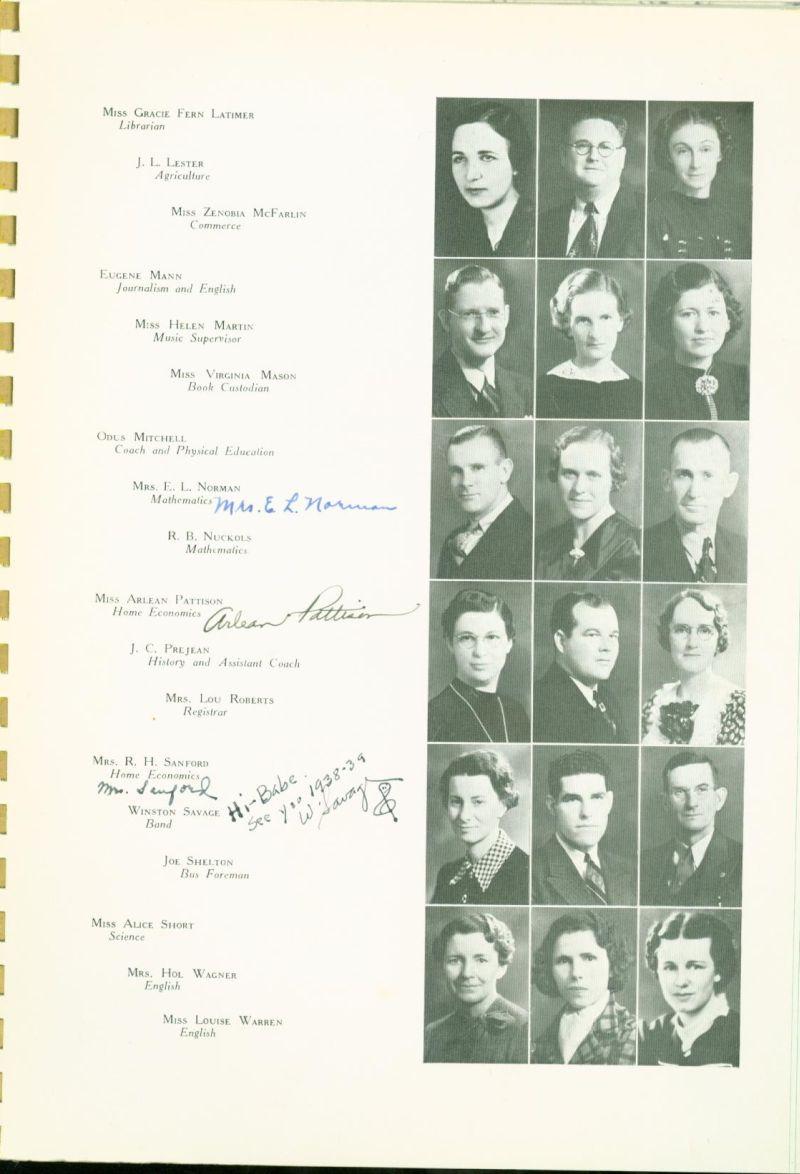 Miss Gracie Fern Latimer
Librarian
J. L. Lester
Agriculture
Miss Zenobia McFarlin
Commerce
Eugene Mann
Journalism and English
Miss Helen Martin
Music Supervisor
Miss Virginia Mason
Book Custodian
Odus Mitchell
Coach and Physical Education
Mrs. E. L. Norman
Mathematics Mrs. E. L. Norman
R. B. Nuckols
Mathematics
Miss Arlean Pattison
Home Economics Arlean Pattison
J. C. Prejean
History and Assistant Coach
Mrs. Lou Roberts
Registrar
Mrs. R. H. Sanford
Home Economics
Mrs. Sanford
Winston Savage
Band
Hi-Babe.
See Yoo 1938-39
W. Savage
Joe Shelton
Bus Foreman
Miss Alice Short
Science
Mrs. Hol Wagner
English
Miss Louise Warren
English